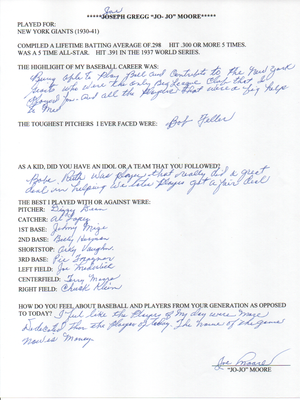 Joe
*****JOSEPH GREGG "JO-JO" MOORE*****
PLAYED FOR:
NEW YORK GIANTS (1930-41)
COMPILED A LIFETIME BATTING AVERAGE OF.298 HIT .300 OR MORE 5 TIMES.
WAS A 5 TIME ALL-STAR. HIT .391 IN THE 1937 WORLD SERIES.
THE HIGHLIGHT OF MY BASEBALL CAREER WAS:
Being able to Play Ball and Contribute to the New York
Giants who were the only Big League Club that I
Played for. And all the People that were a big help
to Me.
THE TOUGHEST PITCHERS I EVER FACED WERE: Bob Feller
AS A KID, DID YOU HAVE AN IDOL OR A TEAM THAT YOU FOLLOWED?
Babe Ruth was Player that really did a great
deal in helping we later Player get a fair deal
THE BEST I PLAYED WITH OR AGAINST WERE:
PITCHER: Dizzy Dean
CATCHER: Al Lopez
1ST BASE: Johnny Mize
2ND BASE: Billy Herman
SHORTSTOP: Arky Vaughn
3RD BASE: Pie Traynor
LEFT FIELD: Joe Medwick
CENTERFIELD: Terry Moore
RIGHT FIELD: Chuck Klein
HOW DO YOU FEEL ABOUT BASEBALL AND PLAYERS FROM YOUR GENERATION AS OPPOSED
TO TODAY? I feel like the Player of My day were More
Dedicated than the Player of today. The name of the game
Now is Money.
Joe Moore
"JO-JO" MOORE